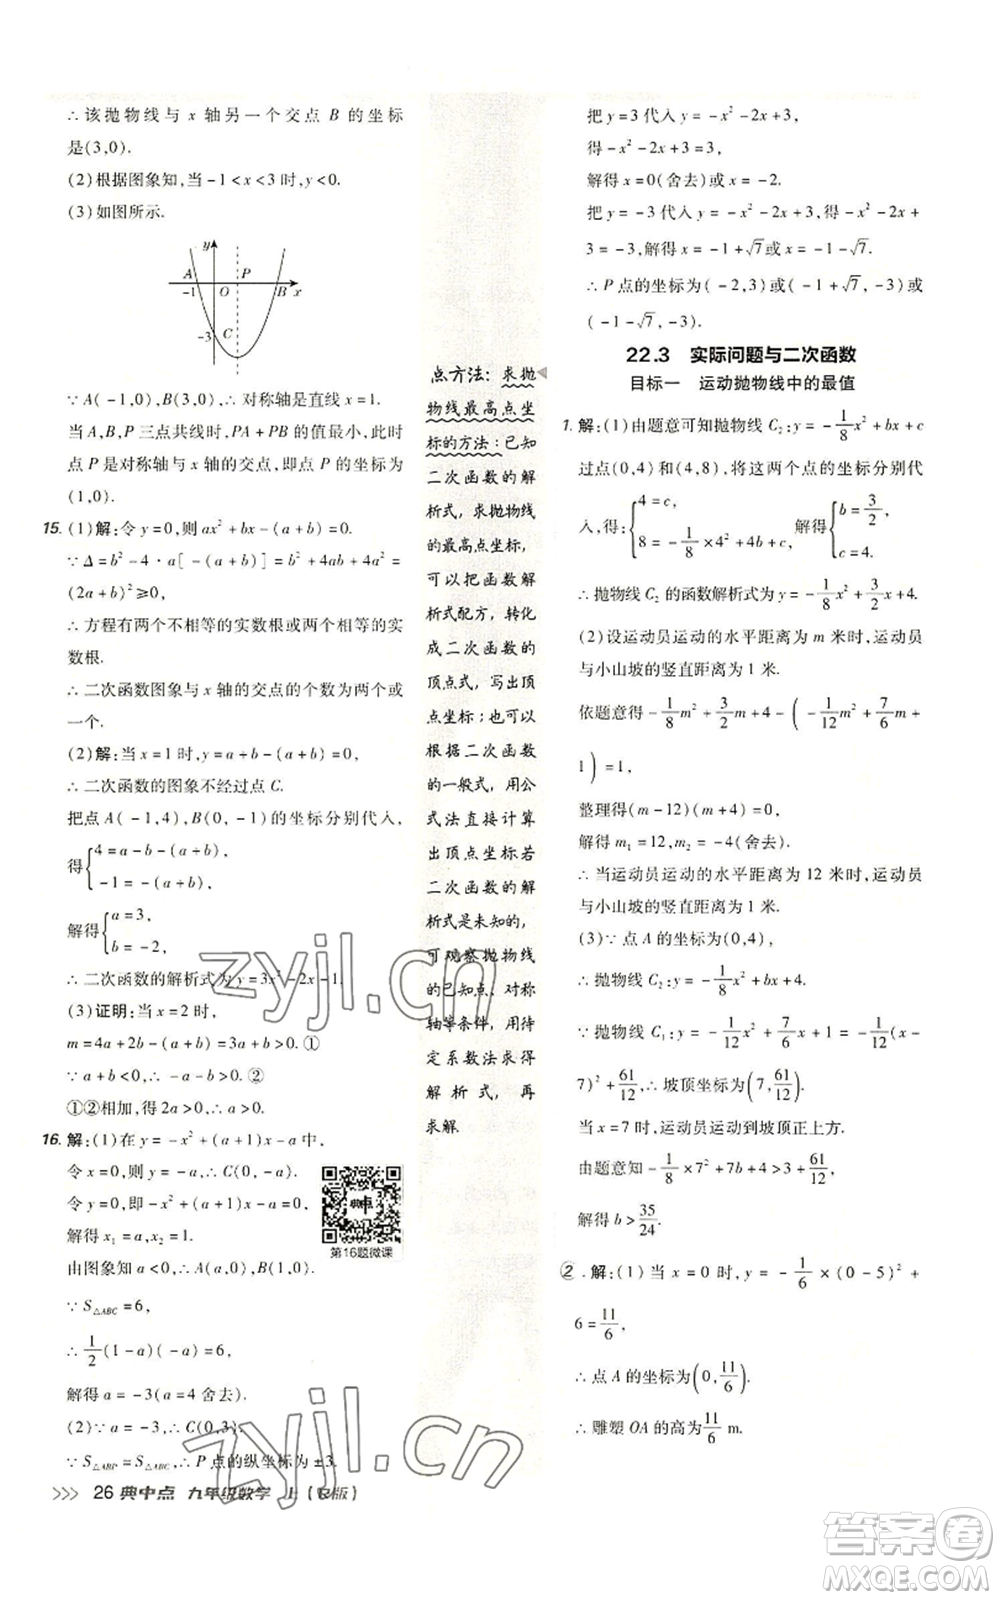 ∴该抛物线与 x 轴另一个交点 B 的坐标
是(3,0).
(2)根据图象知,当 -1<x<3 时,y<0.
(3)如图所示.
y
A
P
-1
O
B
x
-3
C
∵A(-1,0),B(3,0),∴对称轴是直线 x=1.
当 A,B,P 三点共线时,PA+PB 的值最小,此时
点 P 是对称轴与 x 轴的交点,即点 P 的坐标为
(1,0).
15. (1)解:令 y=0,则 ax²+bx-(a+b)=0.
∵Δ=b²-4·a[-(a+b)]=b²+4ab+4a²=
(2a+b)²≥0,
∴方程有两个不相等的实数根或两个相等的实
数根.
∴二次函数图象与 x 轴的交点的个数为两个或
一个.
(2)解:当 x=1 时,y=a+b-(a+b)=0,
∴二次函数的图象不经过点 C.
把点 A(-1,4),B(0,-1)的坐标分别代入,
得{4=a-b-(a+b),
-1=-(a+b),
解得{a=3,
b=-2,
∴二次函数的解析式为 y=3x²-2x-1.
(3)证明:当 x=2 时,
m=4a+2b-(a+b)=3a+b>0.①
∵a+b<0,∴-a-b>0.②
①②相加,得 2a>0,∴a>0.
16. 解:(1)在 y=-x²+(a+1)x-a 中,
令 x=0,则 y=-a,∴C(0,-a).
令 y=0,即-x²+(a+1)x-a=0,
解得 x₁=a,x₂=1.
由图象知 a<0,∴A(a,0),B(1,0).
∵S△ABC=6,
∴1/2(1-a)(-a)=6,
解得 a=-3(a=4 舍去).
(2)∵a=-3,∴C(0,3).
∵S△ABP=S△ABC,∴P 点的纵坐标为±3.
第16题微课
>>> 26 典中点 九年级数学 上(R版)
点方法:求抛
物线最高点坐
标的方法:已知
二次函数的解
析式,求抛物线
的最高点坐标,
可以把函数解
析式配方,转化
成二次函数的
顶点式,写出顶
点坐标;也可以
根据二次函数
的一般式,用公
式法直接计算
出顶点坐标若
二次函数的解
析式是未知的,
可观察抛物线
的已知点、对称
轴等条件,用待
定系数法求得
解析式,再
求解.
把 y=3 代入 y=-x²-2x+3,
得-x²-2x+3=3,
解得 x=0(舍去)或 x=-2.
把 y=-3 代入 y=-x²-2x+3,得-x²-2x+
3=-3,解得 x=-1+√7或 x=-1-√7.
∴P 点的坐标为(-2,3)或(-1+√7,-3)或
(-1-√7,-3).
22.3 实际问题与二次函数
目标一 运动抛物线中的最值
1. 解:(1)由题意可知抛物线 C₂:y=-1/8x²+bx+c
过点(0,4)和(4,8),将这两个点的坐标分别代
入,得:{4=c, 8=-1/8×4²+4b+c, 解得{b=3/2, c=4.
∴抛物线 C₂ 的函数解析式为 y=-1/8x²+3/2x+4.
(2)设运动员运动的水平距离为 m 米时,运动员
与小山坡的竖直距离为 1 米.
依题意得-1/8m²+3/2m+4-(-1/12m²+7/6m+
1)=1,
整理得(m-12)(m+4)=0,
解得 m₁=12,m₂=-4(舍去).
∴当运动员运动的水平距离为 12 米时,运动员
与小山坡的竖直距离为 1 米.
(3)∵点 A 的坐标为(0,4),
∴抛物线 C₂:y=-1/8x²+bx+4.
∵抛物线 C₁:y=-1/12x²+7/6x+1=-1/12(x-
7)²+61/12,∴坡顶坐标为(7,61/12).
当 x=7 时,运动员运动到坡顶正上方.
由题意知-1/8×7²+7b+4>3+61/12,
解得 b>35/24.
② . 解:(1)当 x=0 时,y=-1/6×(0-5)²+
6=11/6,
∴点 A 的坐标为(0,11/6).
∴雕塑 OA 的高为11/6 m.
zyjl.cn
zyjl.cn
答案圈
MXQE.COM